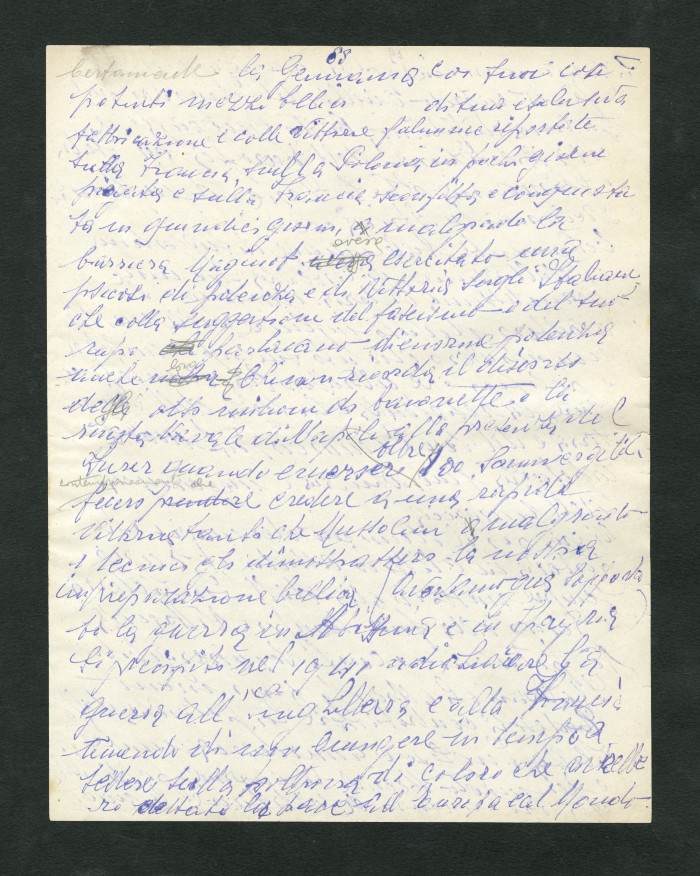 88
certamente la Germania coi suoi così
potenti mezzi bellici di sua e
fabbricazione e colle vittorie fulminee riportate
sulla Francia, sulla Polonia in pochi giorni
piegata e sulla Francia sconfitta e conquista
ta in quindici giorni, malgrado la
barriera Maginot avevo esercitato una
psicosi di potenza e di vittoria sugli Italiani
che colla suggestione del fascismo e del suo
capo bastavano di enorme potenza
anche Chi non ricorda il discorso
degli otto milioni di baionette e la
rivista navale di Napoli alla presenza del
Furer quando emersero oltre 100 Sommergibili
contemporaneamente che
fecero credere a una rapida
vittoria tanto che Mussolini malgrado
i tecnici gli dimostrassero la nostra
impreparazione bellica avevamo già sopporta
to la guerra in Abissinia e in Spagna
si precipitò nel 19 a dichiarare la
guerra all'inghilterra e alla Francia
temendo di non giungere in tempo a
sedere sulla poltrona di coloro che avrebbe
ro dettato la pace all'Europa e al Mondo.